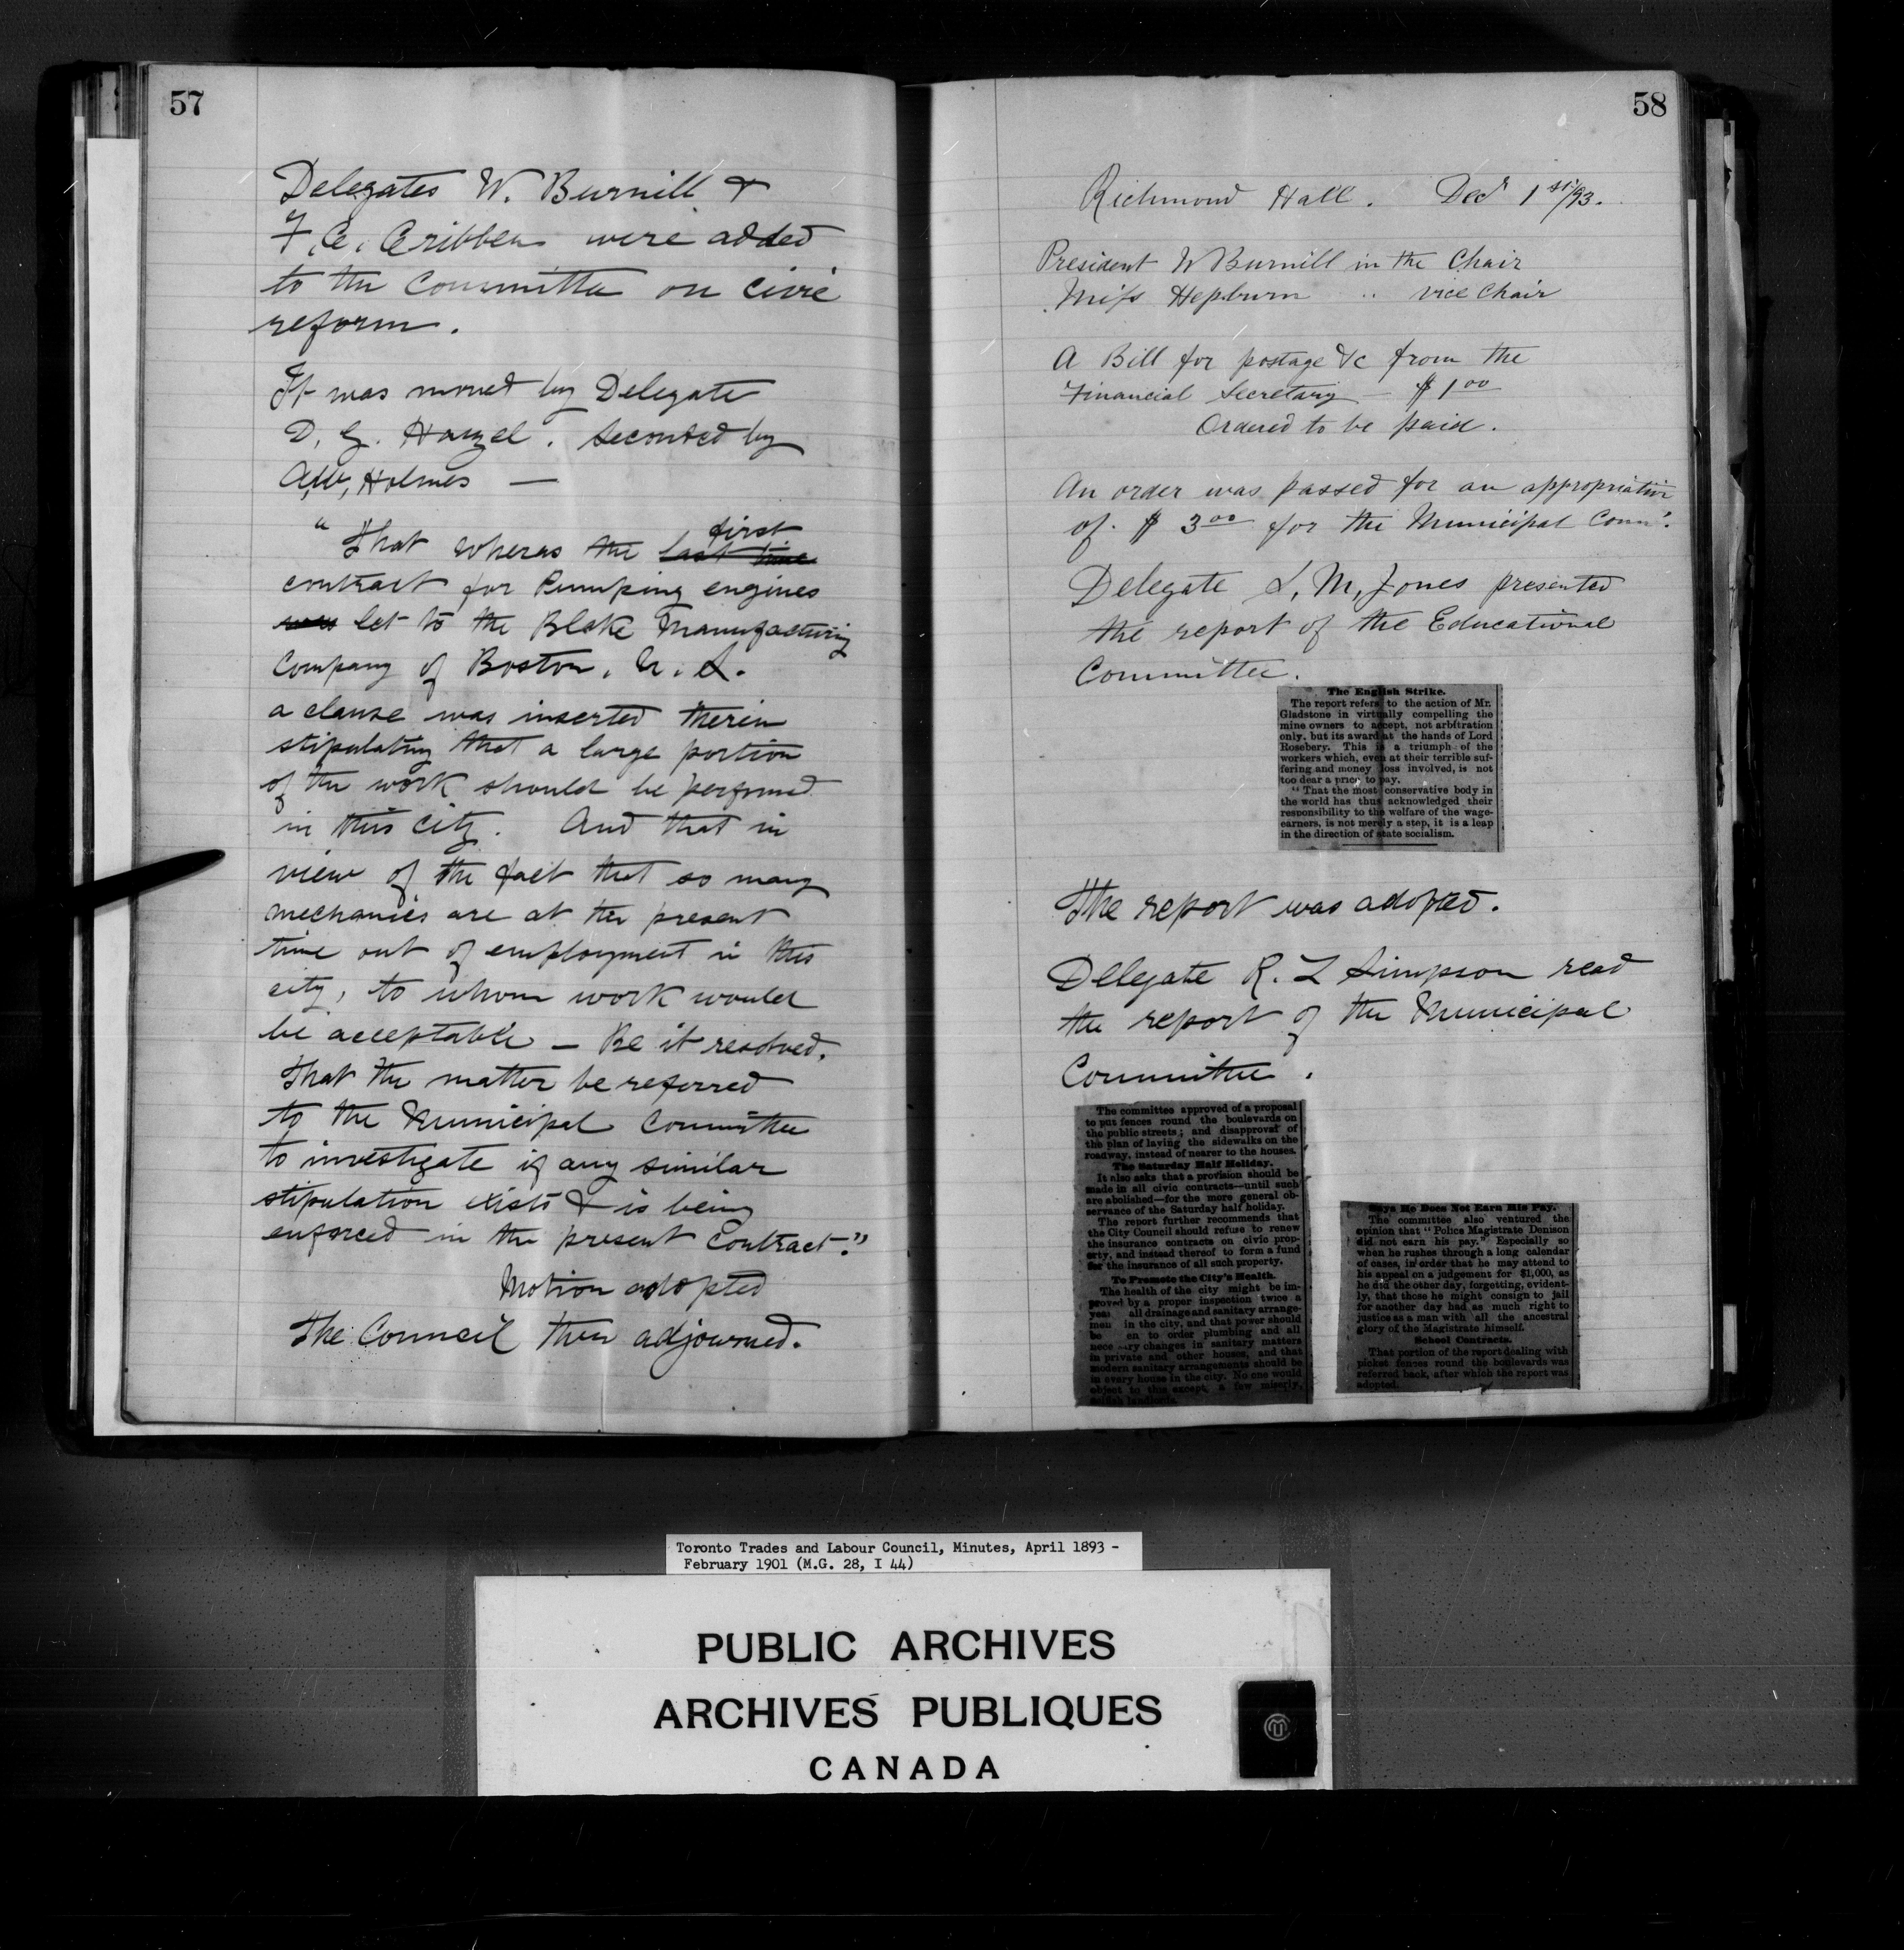 57
Delegates W. Burnill &
F. C. Cribben were added
to the Committee on civic
reform.
It was moved by Delegate
D. G. Hanzel. Seconded by
A.W. Holmes —
"That wheras the last time first
contract for Pumping engines
was let to the Blake Manufacturing
Company of Boston. U. S.
a clause was inserted therin
stipulating that a large portion
of the work should be performed
in this city. And that in
view of the fact that so many
mechanics are at the present
time out of employment in this
city, to whom work would
be acceptable — Be it resolved.
That the matter be referred
to the Municipal Committee
to investigate if any similar
stipulation exists & is being
enforced in the present Contract."
Motion adopted
The Council then adjourned.
58
Richmond Hall. Decr 1st/93.
President W Burnill in the Chair
Miss Hepburn " vice Chair
A Bill for postage &c from the
Financial Secretary — $1 00
Ordered to be paid.
An order was passed for an appropriation
of $ 3 00 for the Municipal Comm'.
Delegate L. M, Jones presented
the report of the Educational
Committee.
The English Strike.
The report refers to the action of Mr.
Gladstone in virtually compelling the
mine owners to accept, not arbitration
only, but its award at the hands of Lord
Rosebery. This is a triumph of the
workers which, even at their terrible suf-
fering and money loss involved, is not
too dear a price to pay.
"That the most conservative body in
the world has thus acknowledged their
responsibility to the welfare of the wage-
earners, is not merely a step, it is a leap
in the direction of state socialism.
The report was adopted.
Delegate R. L Simpson read
the report of the Municipal
Committee.
The committee approved of a proposal
to put fences round the boulevards on
the public streets; and disapproval of
the plan of laying the sidewalks on the
roadway, instead of nearer to the houses.
The Saturday Half Holiday.
It also asks that a provision should be
made in all civic contracts—until such
are abolished—for the more general ob-
servance of the Saturday half holiday.
The report further recommends that
the City Council should refuse to renew
the insurance contracts on civic prop-
erty, and instead thereof to form a fund
for the insurance of all such property.
To Promote the City's Health.
The health of the city might be im-
proved by a proper inspection twice a
year all drainage and sanitary arrange-
men in the city, and that power should
be en to order plumbing and all
nece ary changes in sanitary matters
in private and other houses, and that
modern sanitary arrangements should be
in every house in the city. No one would
object to this except, a few miserly,
selfish landlords.
Says He Does Not Earn His Pay.
The committee also ventured the
opinion that "Police Magistrate Denison
did not earn his pay." Especially so
when he rushes through a long calendar
of cases, in order that he may attend to
his appeal on a judgement for $1,000, as
he did the other day, forgetting, evident-
ly, that those he might consign to jail
for another day had as much right to
justice as a man with all the ancestral
glory of the Magistrate himself.
School Contracts.
That portion of the report dealing with
picket fences round the boulevards was
referred back, after which the report was
adopted.
Toronto Trades and Labour Council, Minutes, April 1893 -
February 1901 (M.G. 28, I 44)
PUBLIC ARCHIVES
ARCHIVES PUBLIQUES
CANADA